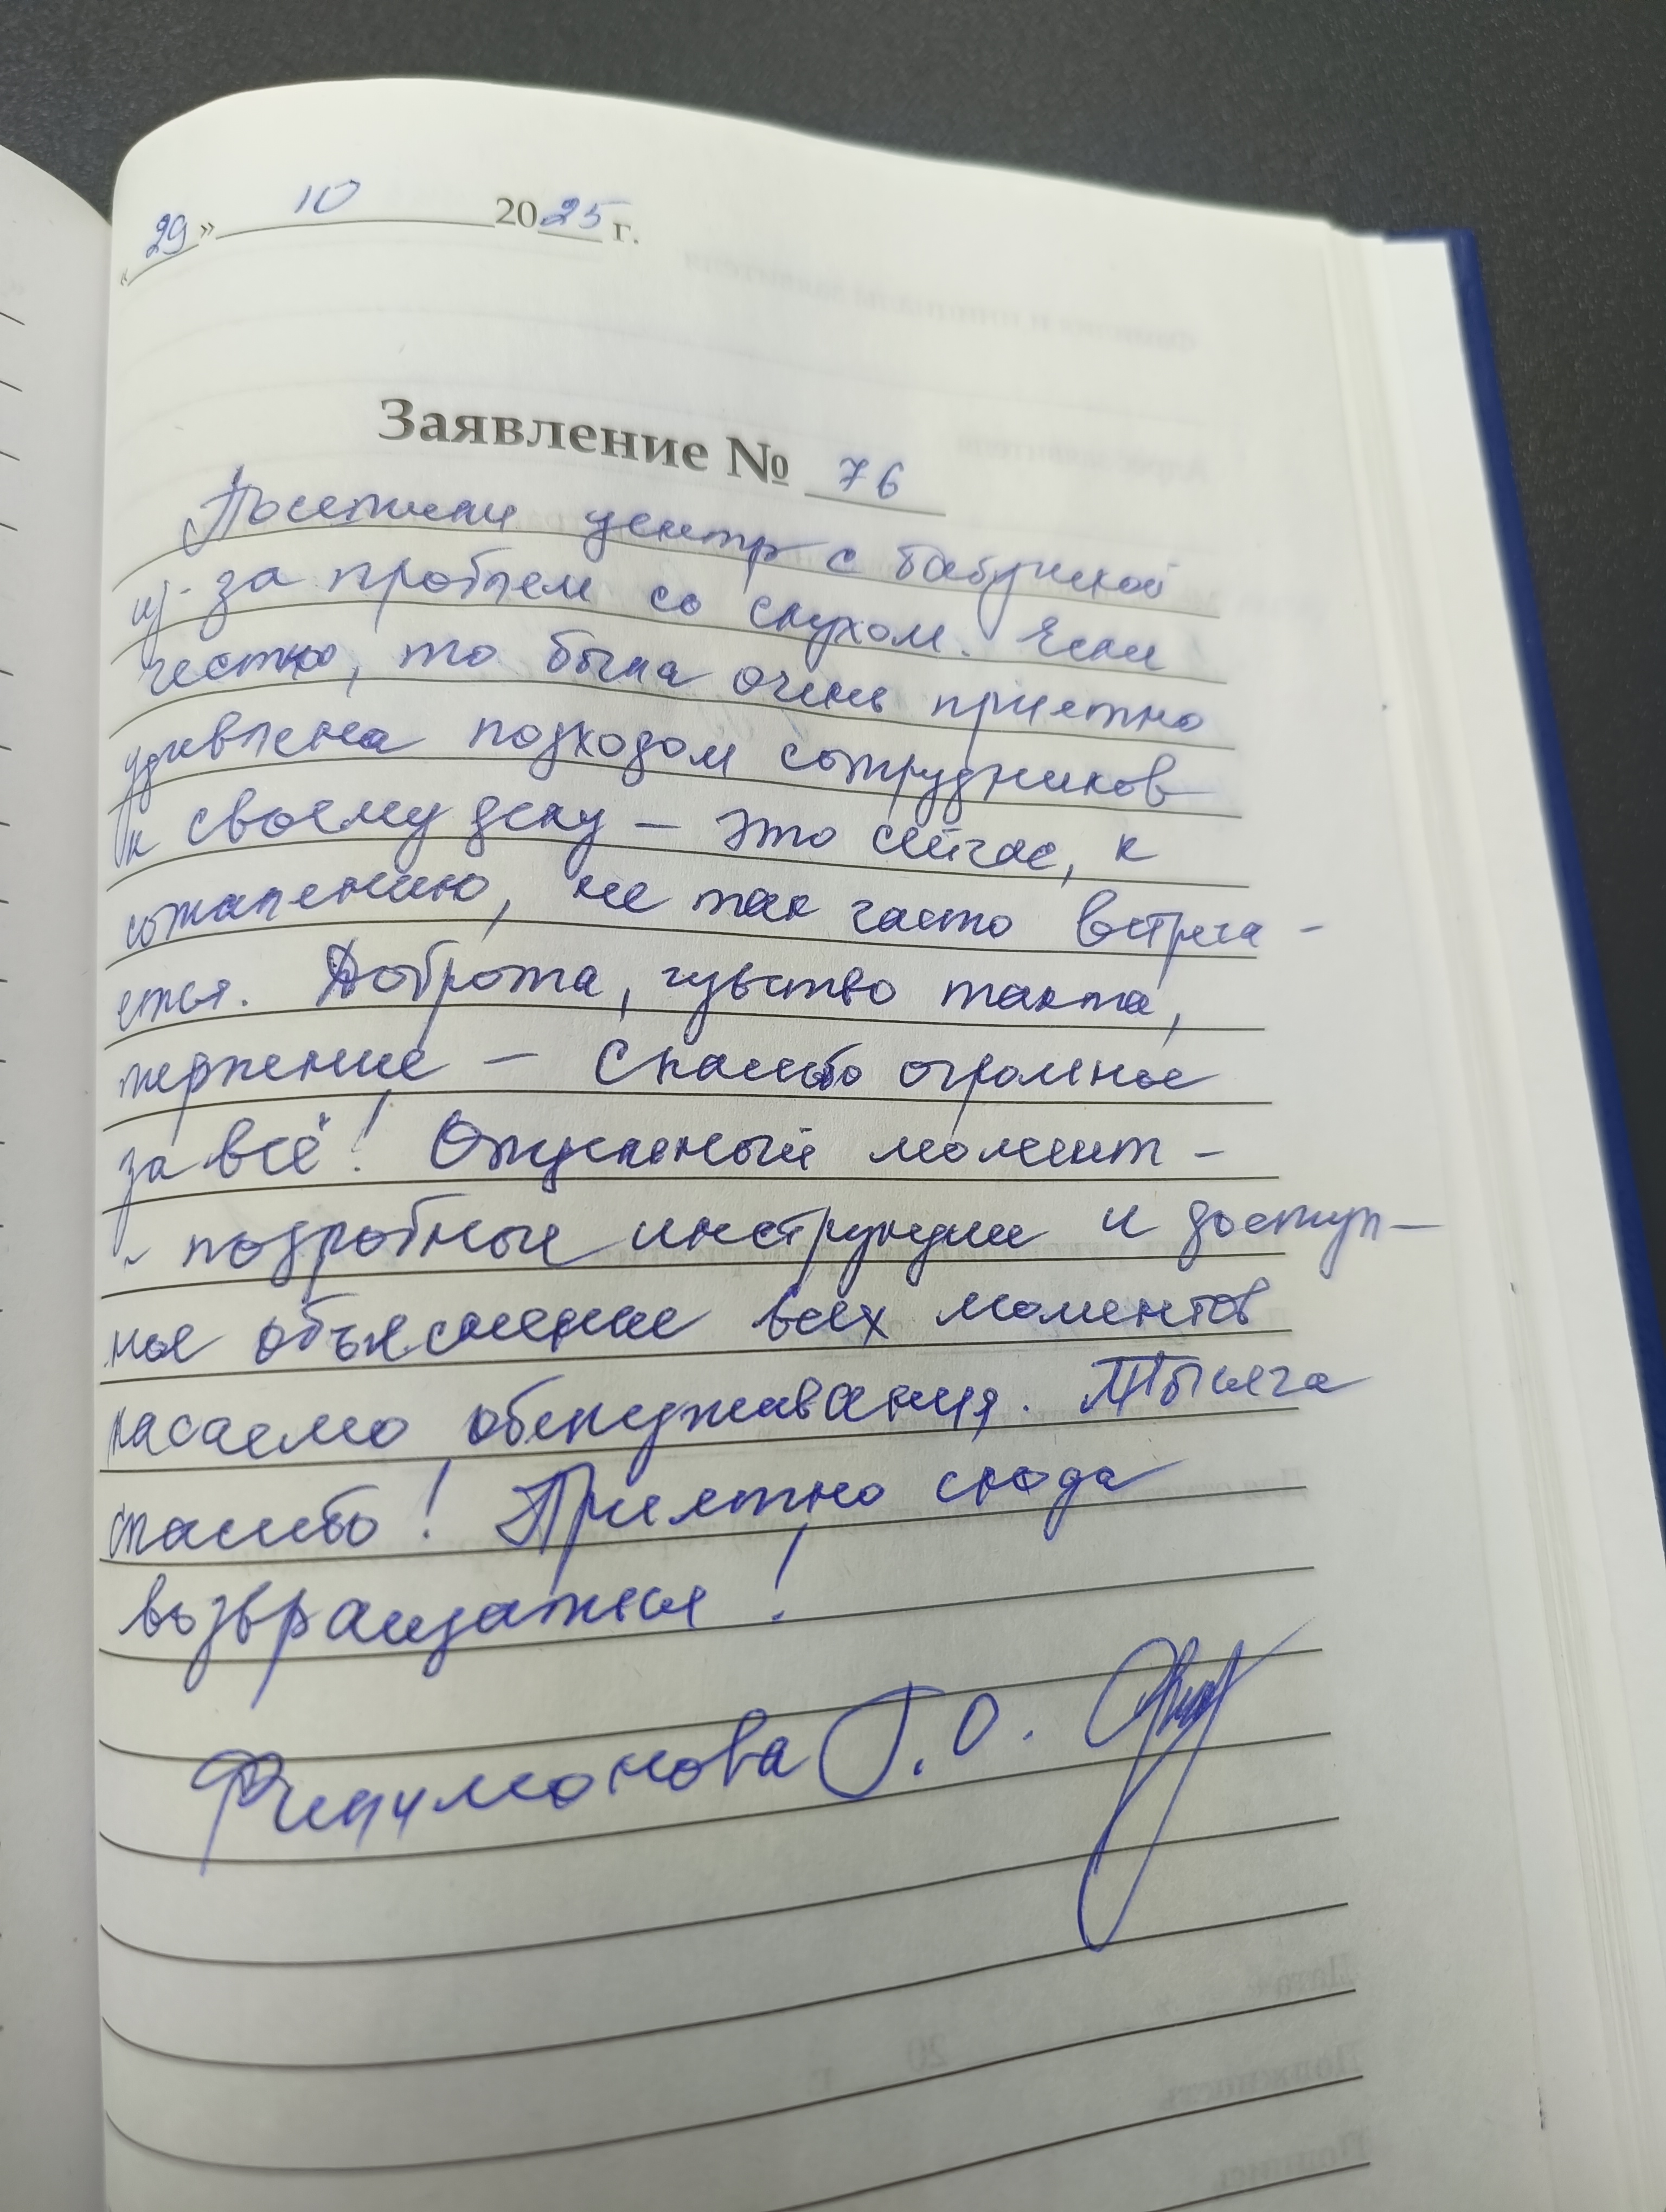 «29» 10 2025 г.
Заявление № 76
Посетили центр с бабушкой
из-за проблем со слухом. Если
честно, то была очень приятно
удивлена подходом сотрудников
к своему делу – это сейчас, к
сожалению, не так часто встреча-
ется. Доброта, чувство такта,
терпение – Спасибо огромное
за всё! Отдельный момент –
- подробные инструкции и доступ-
ное объяснение всех моментов
касаемо обслуживания. Тысяча
спасибо! Приятно сюда
возвращаться!
Филимонова Г.О.